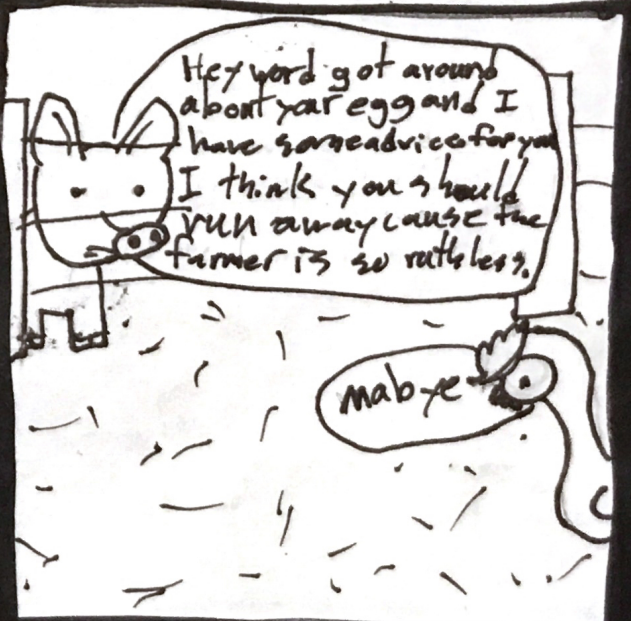 Hey word got around
about your egg and I
have some advice for you
I think you should
run away cause the
farmer is so ruthless.
mabye